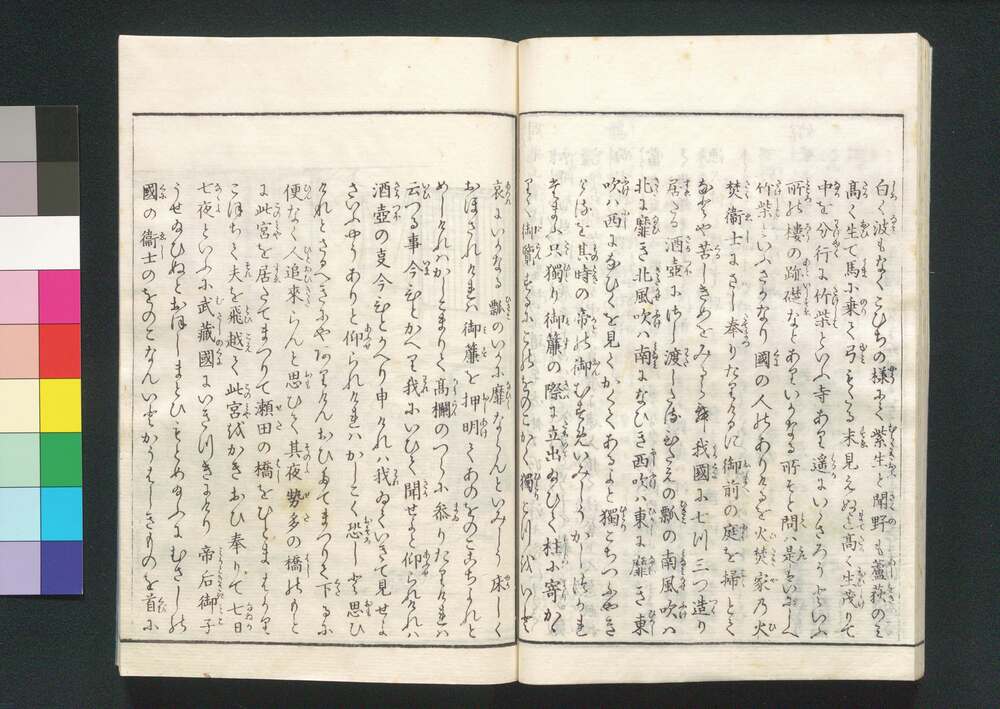 白く波もなくこひちの様にて紫生と聞野も蘆荻のミ
高く生て馬に乗て弓もてる末見えぬまて高く生茂りて
中を分行に竹柴といふ寺あり遥にいくさろうといふ
所の楼の跡礎なとあるいかなる所そと問ハ是いにしへ
竹柴といふさかなり國の人のありけるを火焚家の火
焚衞士にさし奉りたりけるに御前の庭を掃とて
なとや苦しきめをみるらん我國に七川三つ造り
居たる酒壺にさし渡したるひたえの瓢の南風吹ハ
北に靡き北風吹ハ南になひき西吹ハ東に靡き東
吹ハ西になひくを見てかくてあるよと獨こちつふやき
けるを其時の帝の御むすめいみしうかしつかれ
給ふ只獨り御簾の際に立出給ひて柱に寄かゝ
りて御覧するに此をのこのかく獨こつをいと
哀にいかなる瓢のいかに靡ならんといみしう床しく
おほされけれハ御簾を押明てあのをのここちよれと
めしけれハかしこまりて高欄のつらに参りたりけれハ
云つる事今ひとかへり我にいひて聞せよと仰られけれハ
酒壺の事今ひとかへり申けれハ我ゐていきて見せよ
さいふやうありと仰られけれハかしこく恐しと思ひ
けれとさるへきにやありけんおひ奉てまつりて下るに
便なく人追來らんと思ひて其夜勢多の橋のもと
に此宮を居たてまつりて瀬田の橋をひとまはかり
こほちて夫を飛越て此宮をかきおひ奉りて七日
七夜といふに武藏國にいきつきにけり帝后御子
うせ給ひぬとおほしまとひもとめ給ふにむさしの
國の衞士のをのこなんいとかうはしきものを首に